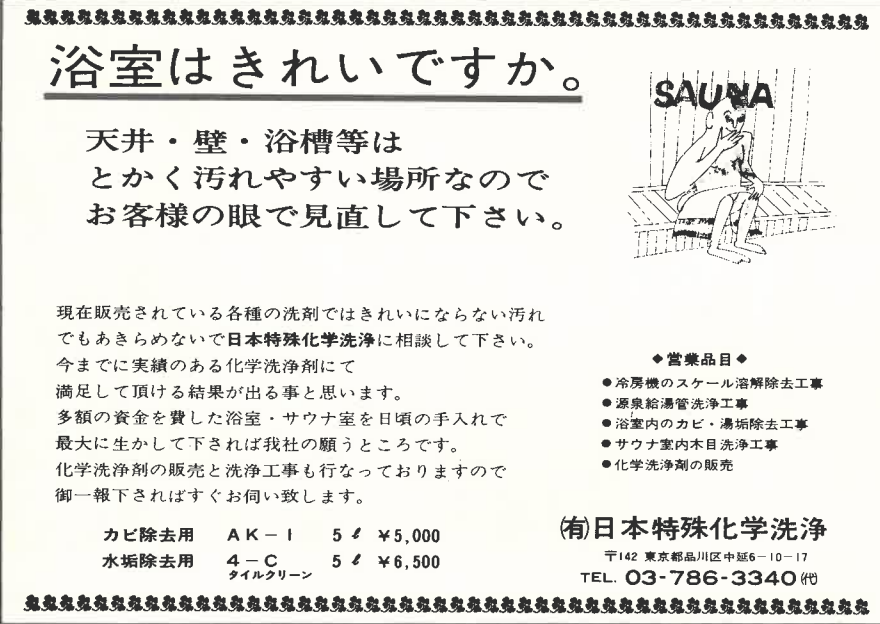 浴室はきれいですか。
天井・壁・浴槽等は
とかく汚れやすい場所なので
お客様の眼で見直して下さい。
SAUNA
現在販売されている各種の洗剤ではきれいにならない汚れ
でもあきらめないで日本特殊化学洗浄に相談して下さい。
今までに実績のある化学洗浄剤にて
満足して頂ける結果が出る事と思います。
多額の資金を費した浴室・サウナ室を日頃の手入れで
最大に生かして下されば我社の願うところです。
化学洗浄剤の販売と洗浄工事も行なっておりますので
御一報下さればすぐお伺い致します。
カビ除去用 AK-1 5ℓ ¥5,000
水垢除去用 4-C 5ℓ ¥6,500
タイルクリーン
◆営業品目◆
●冷房機のスケール溶解除去工事
●源泉給湯管洗浄工事
●浴室内のカビ・湯垢除去工事
●サウナ室内木目洗浄工事
●化学洗浄剤の販売
㈲日本特殊化学洗浄
〒142 東京都品川区中延6-10-17
TEL. 03-786-3340㈹